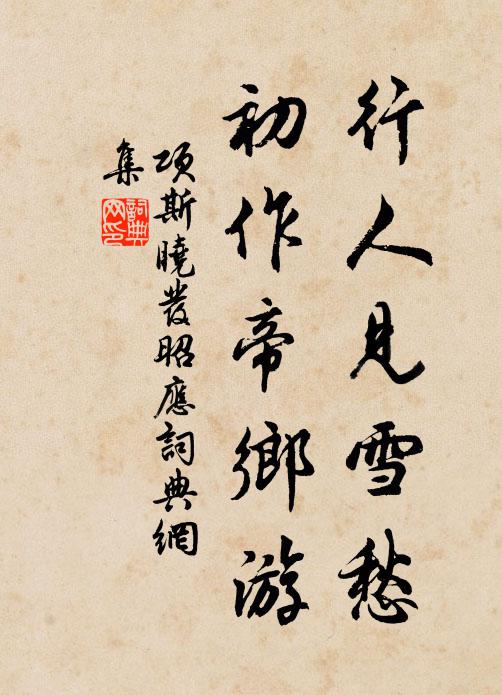 行人見雪愁
初作帝鄉游
項斯曉發昭應詞典網
集
詞典
网印